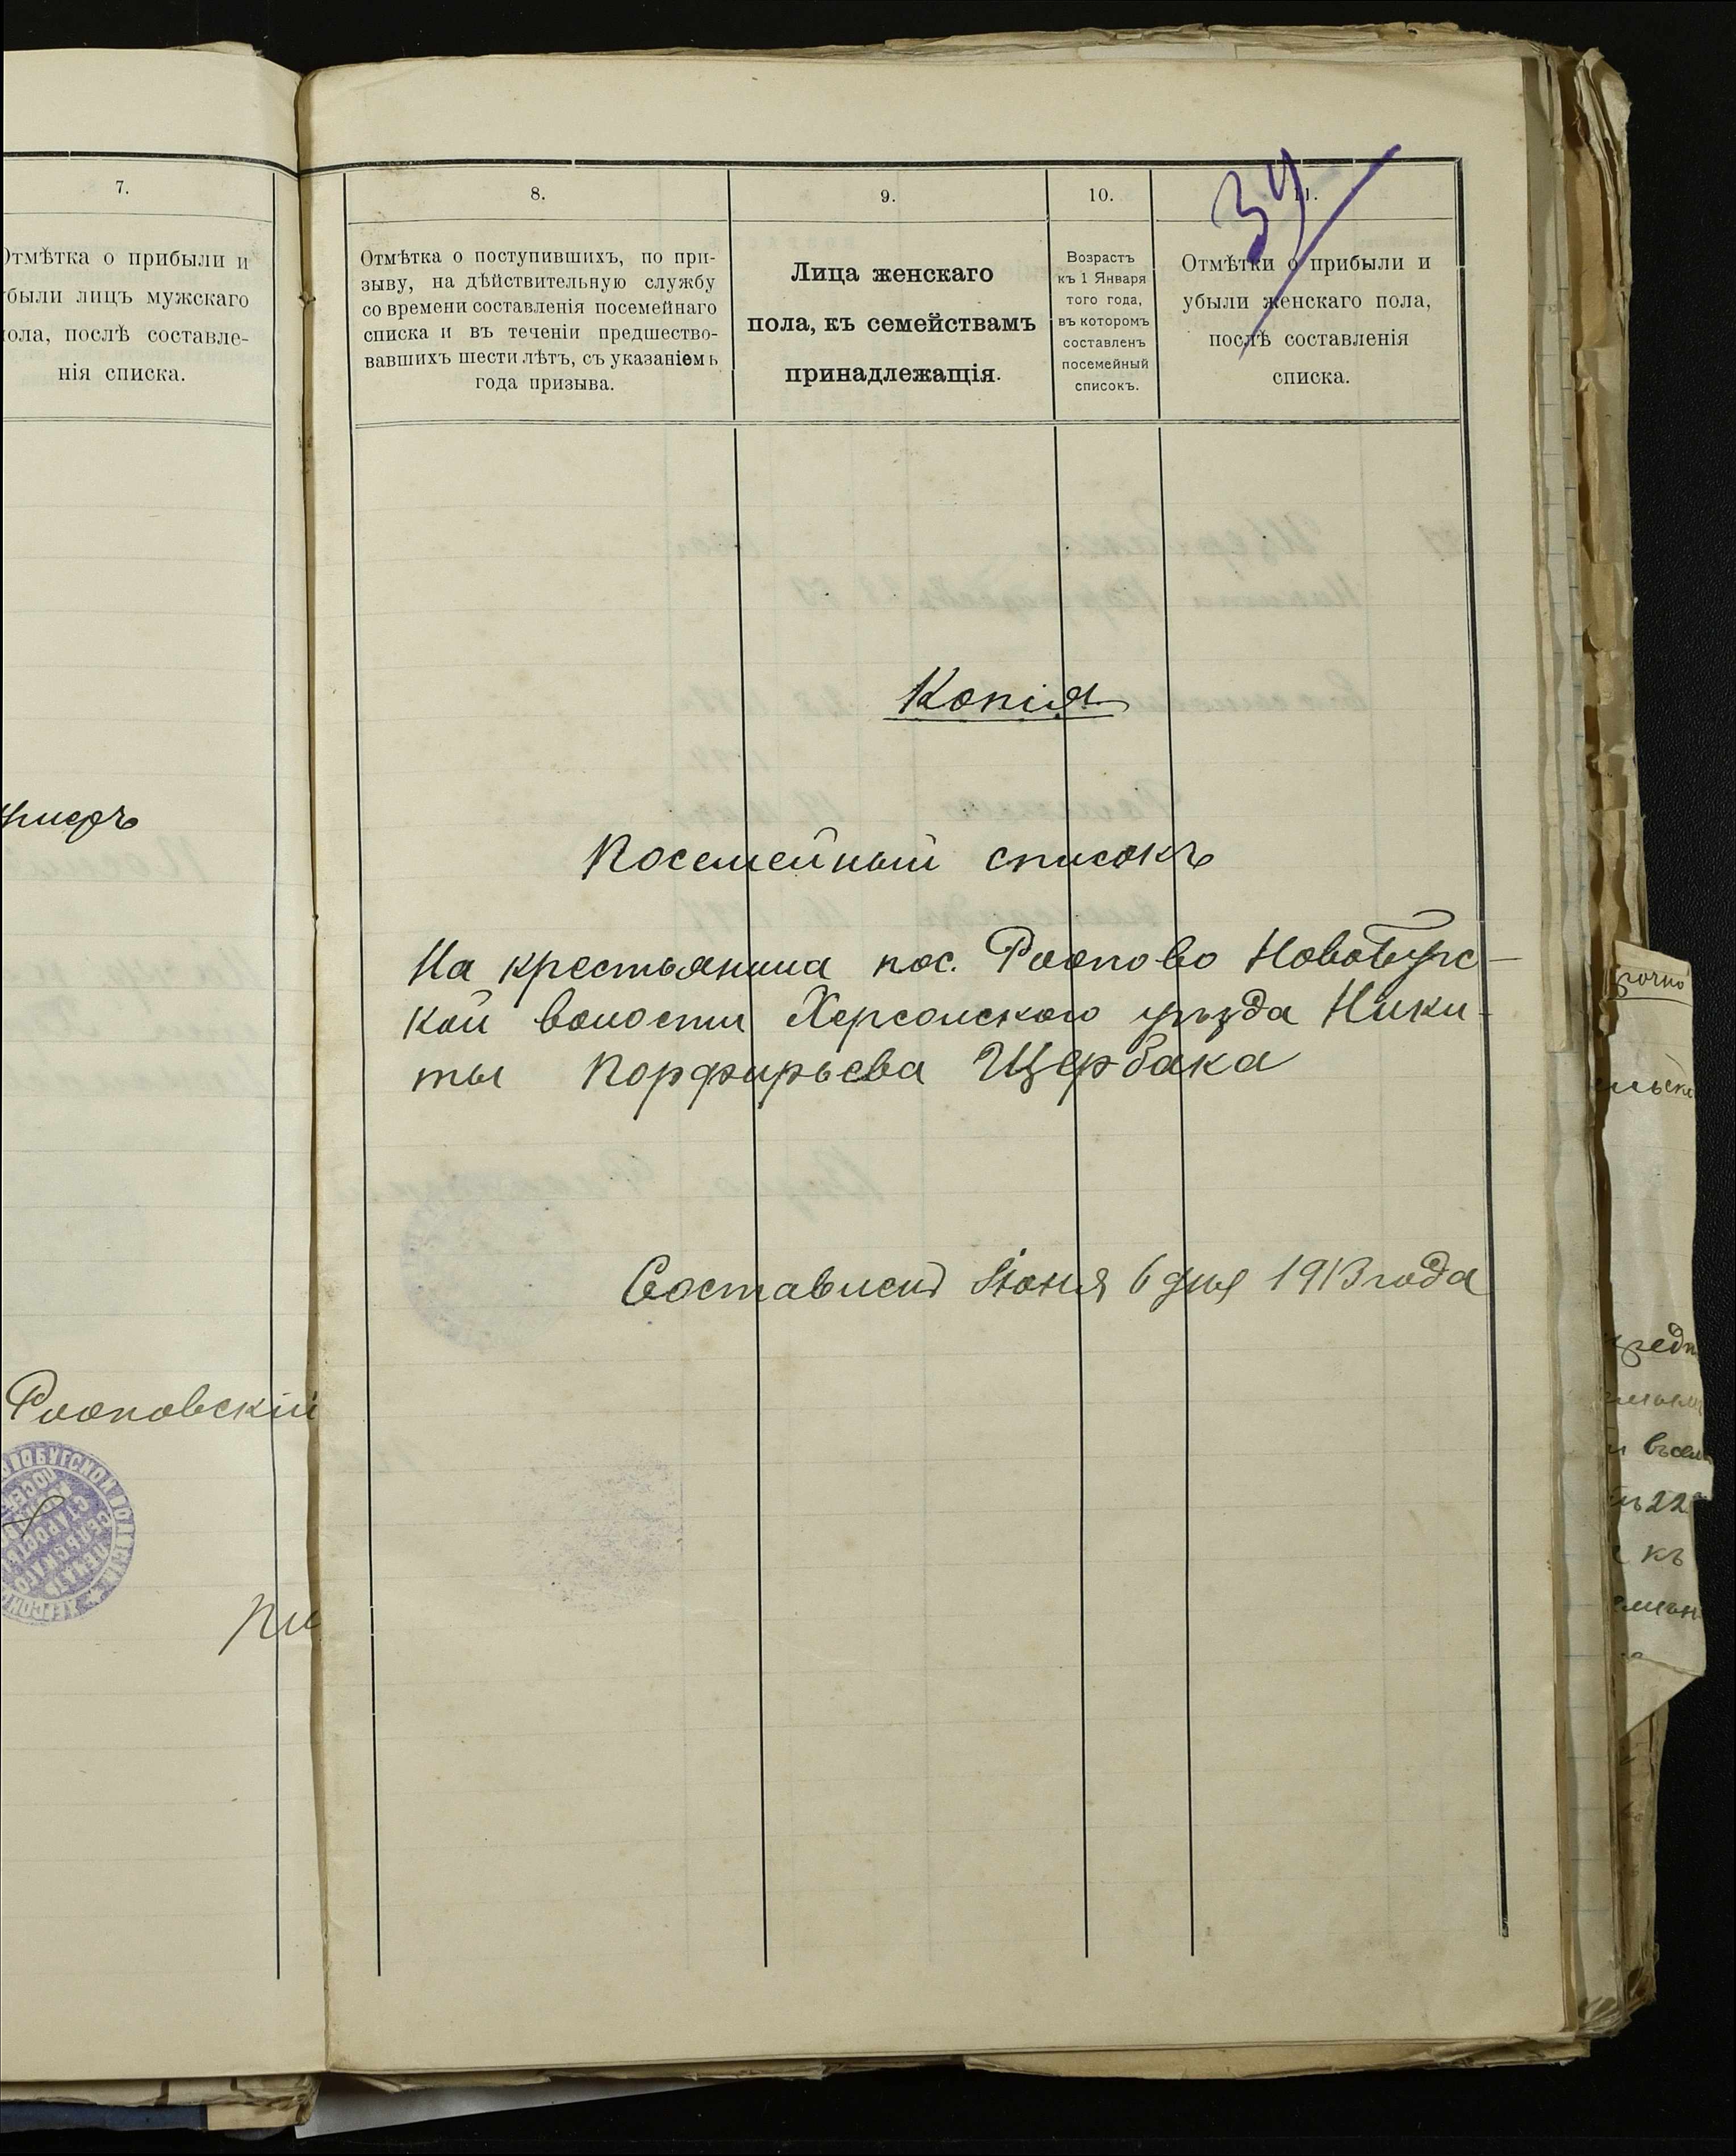 7.
Отмѣтка о прибыли и
убыли лицъ мужскаго
пола, послѣ составле-
нія списка.
Рооповскій
8.
Отмѣтка о поступившихъ, по при-
зыву, на дѣйствительную службу
со времени составленія посемейнаго
списка и въ теченіи предшество-
вавшихъ шести лѣтъ, съ указаніемъ
года призыва.
9.
Лица женскаго
пола, къ семействамъ
принадлежащія.
10.
Возрастъ
къ 1 Января
того года,
въ которомъ
составленъ
посемейный
списокъ.
11.
Отмѣтки о прибыли и
убыли женскаго пола,
послѣ составленія
списка.
Копія
Посемейный списокъ
На крестьянина пос. Роопово Новобугс-
кой волости Херсонского уѣзда Ники-
ты Порфирьева Щербака
Составленъ Іюня 6 дня 1913 года